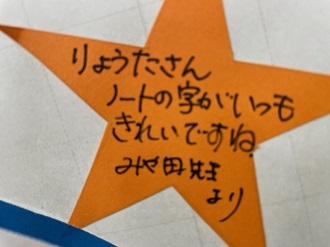 りょうたさん
ノートの字がいつも
きれいですね.
みや田先生
より